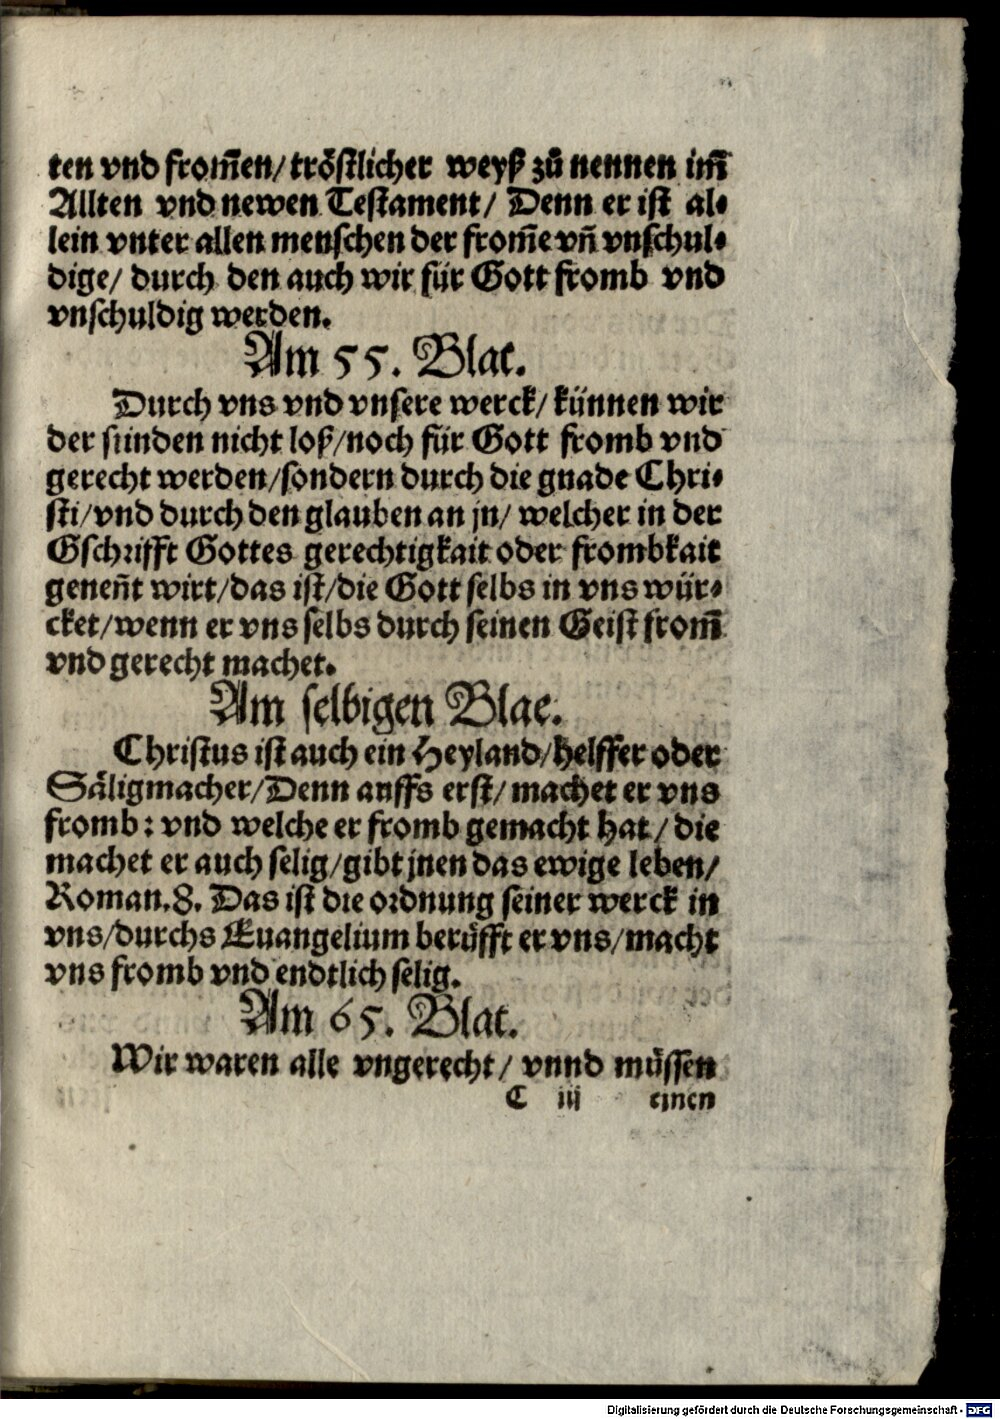 ten vnd from̃en/ tröstlicher weyß zů nennen im̃
Allten vnd newen Testament/ Denn er ist al⸗
lein vnter allen menschen der from̃e vñ vnschul⸗
dige/ durch den auch wir für Gott fromb vnd
vnschuldig werden.
Am 55. Blat.
Durch vns vnd vnsere werck/ künnen wir
der sünden nicht loß/noch für Gott fromb vnd
gerecht werden/sondern durch die gnade Chri⸗
sti/vnd durch den glauben an jn/ welcher in der
Gschrifft Gottes gerechtigkait oder frombkait
geneñt wirt/das ist/die Gott selbs in vns wür⸗
cket/wenn er vns selbs durch seinen Geist from̃
vnd gerecht machet.
Am selbigen Blat.
Christus ist auch ein Heyland/helffer oder
Säligmacher/Denn auffs erst/ machet er vns
fromb: vnd welche er fromb gemacht hat/ die
machet er auch selig/gibt jnen das ewige leben/
Roman.8. Das ist die ordnung seiner werck in
vns/durchs Euangelium berůfft er vns/macht
vns fromb vnd endtlich selig.
Am 65. Blat.
Wir waren alle vngerecht/ vnnd můssen
C iij einen
Digitalisierung gefördert durch die Deutsche Forschungsgemeinschaft - DFG